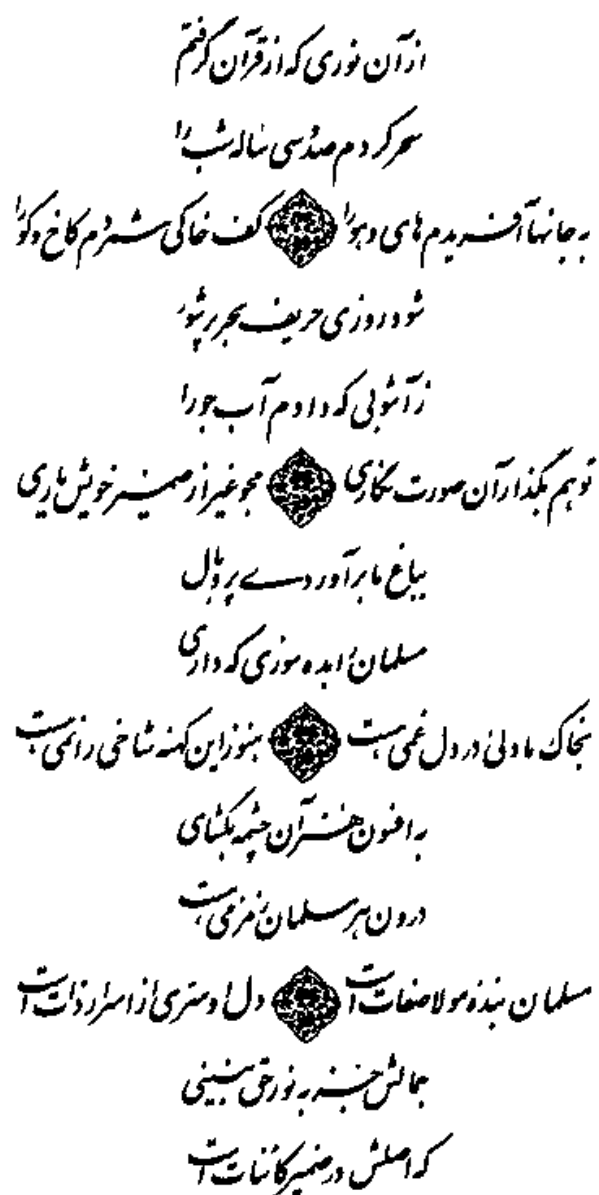 از آن نوری که از قرآن گرفتم
سحر کردم صد و سی ساله شب را
به جانها آفریدم های و هو را کف خاکی شمردم کاخ و کو را
شود روزی حریف بحر پر شور
ز آشوبی که دادم آب جو را
تو هم بگذار آن صورت نگاری مجو غیر از ضمیر خویش یاری
بباغ ما برآوردی پر و بال
مسلمان را بده سوزی که داری
بخاک ما دلی در دل غمی هست هنوز این کهنه شاخی را نمی هست
به افسون هنر آن چشمه بگشای
درون هر مسلمان زمزمی هست
مسلمان بندهٔ مولا صفات است دل او سری از اسرار ذات است
جمالش جز به نور حق نبینی
که اصلش در ضمیر کائنات است